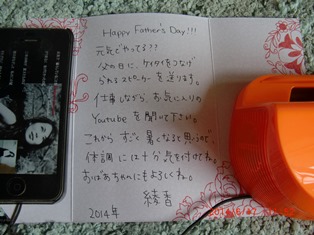 Happy Father's Day!!!
元気でやってる??
父の日に、ケイタイをつなげ
られるスピーカーを送ります。
仕事しながら、お気に入りの
Youtubeを聞いて下さい。
これから すごく暑くなると思うので
体調には十分気を付けてね。
おばあちゃんにもよろしくね。
綾香
2014年